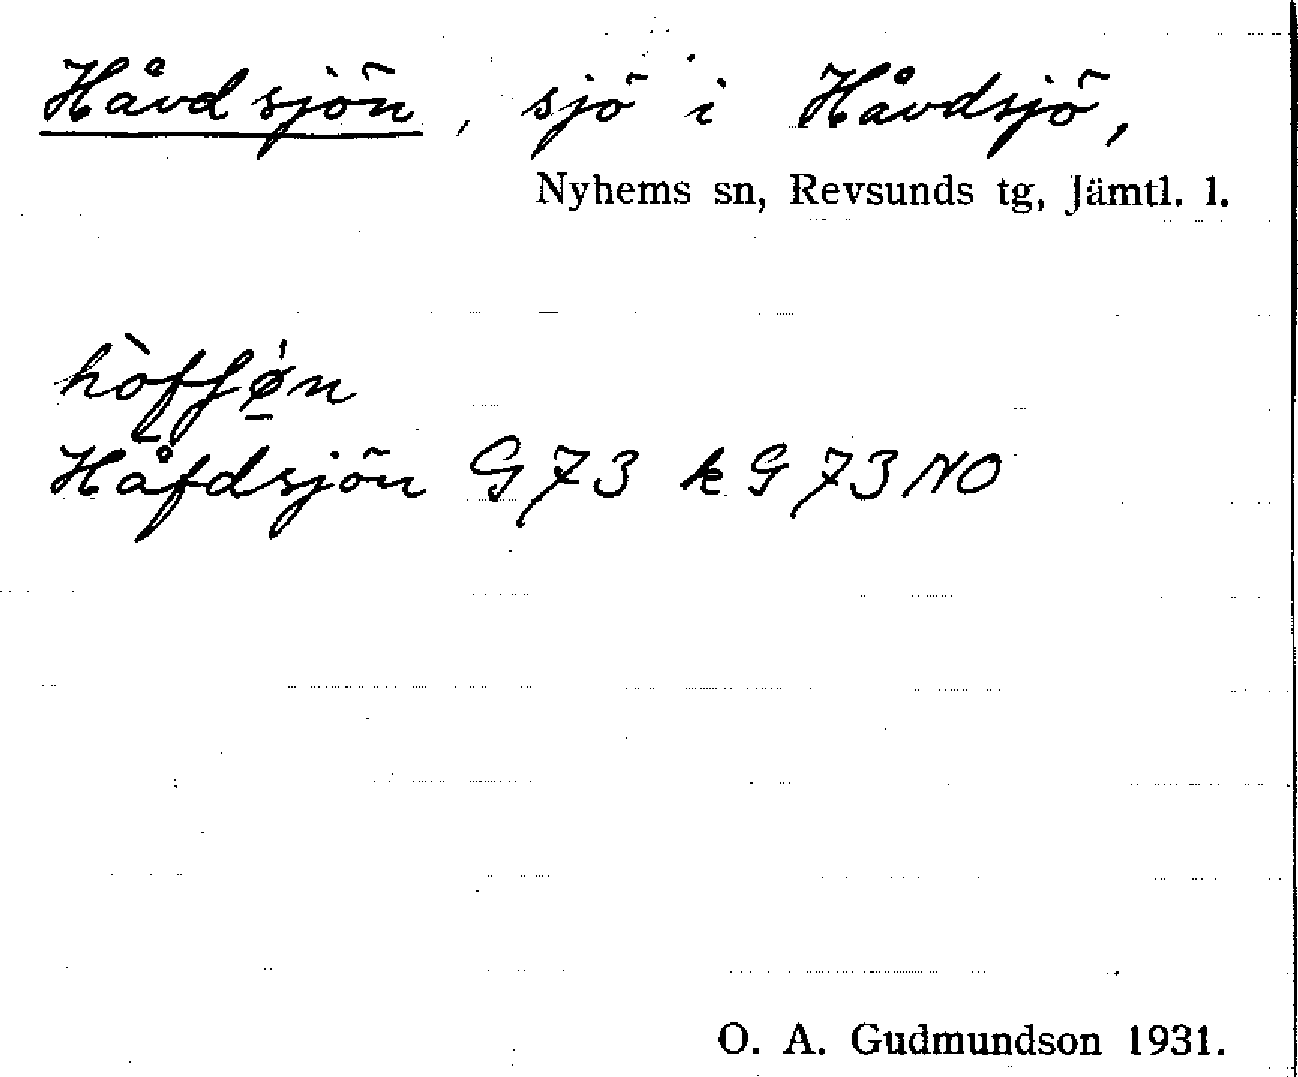 Håvdsjön, sjö i Håvdsjö,
Nyhems sn, Revsunds tg, Jämtl. l.
Håfdsjön G73 k G73NO
O. A. Gudmundson 1931.